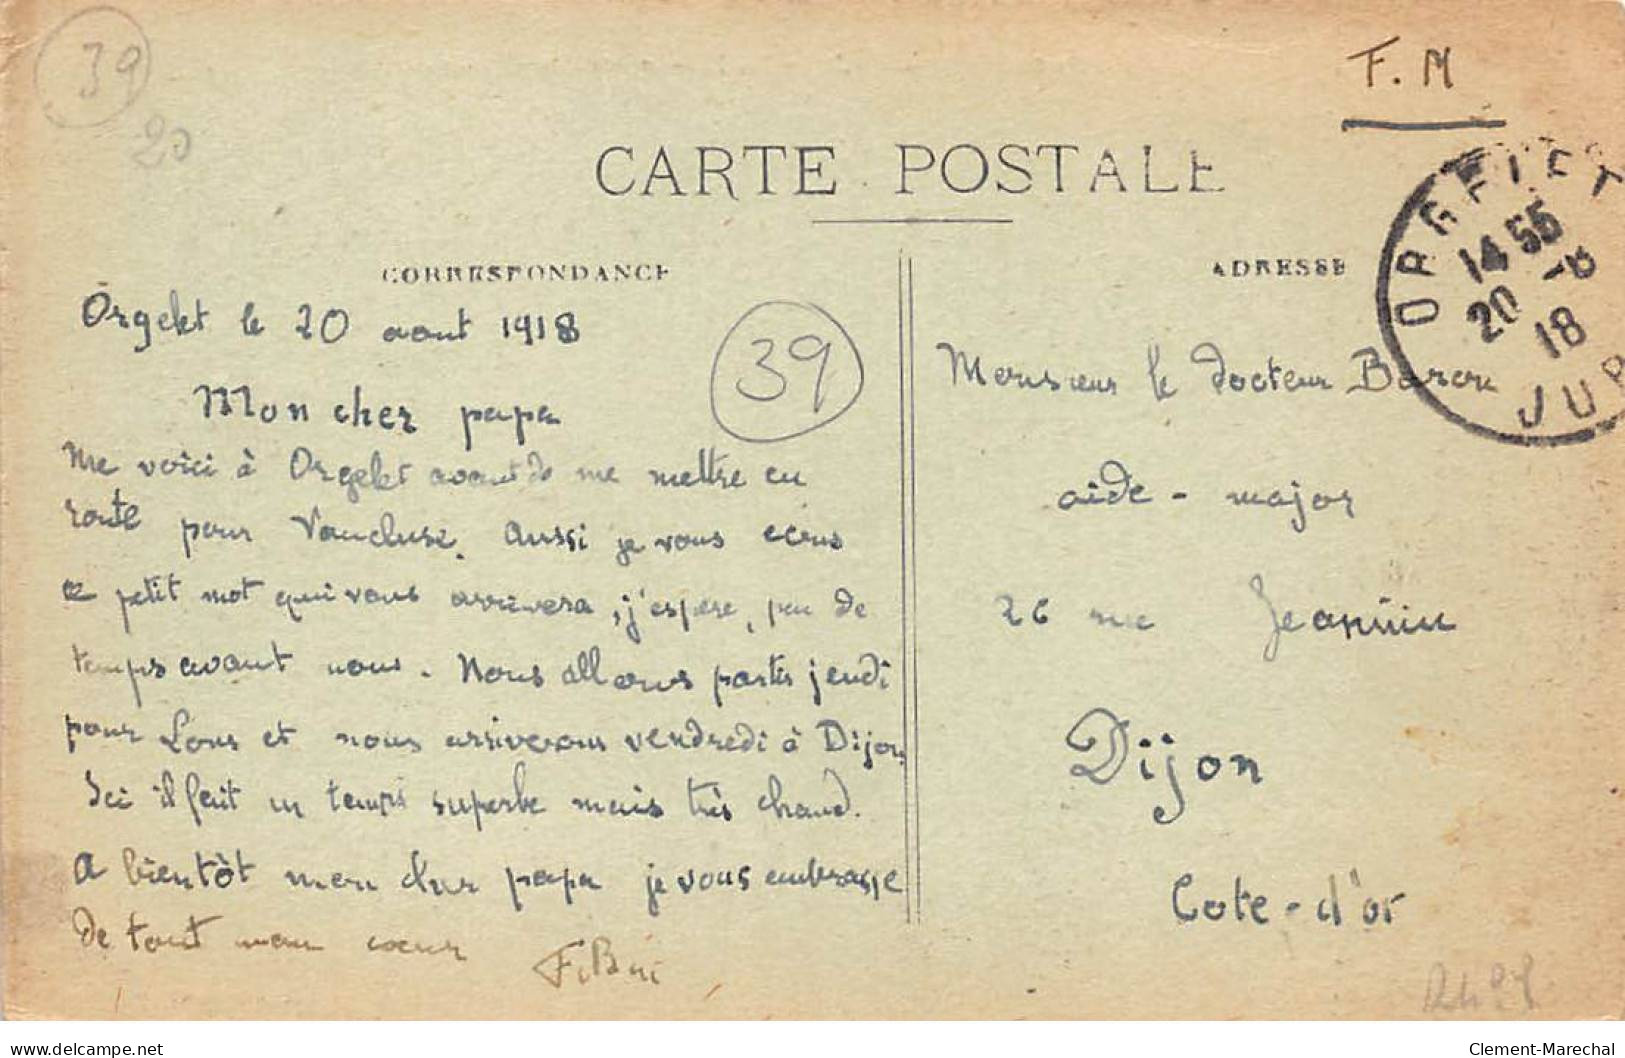 39
20
F. M
CARTE POSTALE
CORRESPONDANCE
ADRESSE
ORGELET
14 55
20 -8
18
JURA
Orgelet le 20 aout 1918
39
Mon cher papa
me voici à Orgelet avant de me mettre en
route pour Vaucluse. Aussi je vous ecris
ce petit mot qui vous arrivera, j'espere, peu de
temps avant nous. Nous allons partir jeudi
pour Lons et nous arriverons vendredi à Dijon
Ici il fait un temps superbe mais très chaud.
A bientôt mon cher papa je vous embrasse
de tout mon cœur
Monsieur le docteur
aide-major
26 rue Jeannin
Dijon
Cote-d'or
delcampe.net
Clement-Marechal